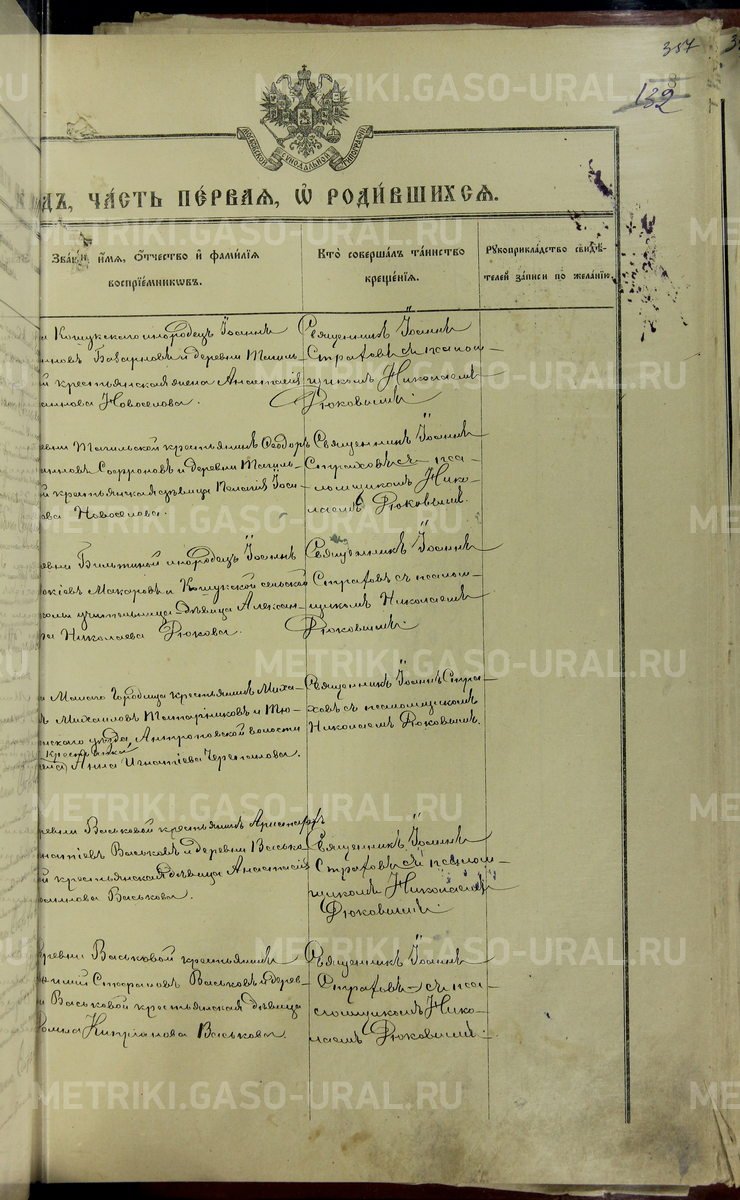 357
132
МОСКОВСКОЙ СѴНОДАЛЬНОЙ ТИПОГРАФІИ
ДЪ, ЧА́СТЬ ПЕ́РВАЯ, Ѽ РОДИ́ВШИХСЯ.
И́МЯ, Ѻ҆́ТЧЕСТВО И҆ ФАМИ́ЛІЯ
ВОСПРІЕ́МНИКѠВЪ.
КТО̀ СОВЕРШАЛЪ ТА́ИНСТВО
КРЕЩЕ́НІЯ.
РꙊКОПРИКЛА́ДСТВО СВИДѢ́-
ТЕЛЕЙ ЗА́ПИСИ ПО ЖЕЛА́НІЮ.
Кошукскаго инородецъ Іоаннъ
и деревни Тагиль-
й крестьянская жена Анастасія
Новоселова.
Священникъ Іоаннъ
Страховъ съ псалом-
щикомъ Николаемъ
Рюковымъ.
евни Тагильской крестьянинъ Ѳеодоръ
Софроновъ и деревни Тагиль-
й крестьянская дѣвица Пелагія Іоан-
ова Новоселова.
Священникъ Іоаннъ
Страховъ съ пса-
ломщикомъ Нико-
лаемъ Рюковымъ.
евни инородецъ Іоаннъ
Макаровъ и Кошукской сельской
колы учительница дѣвица Алексан-
ра Николаева Рюкова.
Священникъ Іоаннъ
Страховъ съ псалом-
щикомъ Николаемъ
Рюковымъ.
а Малаго Городища крестьянинъ Миха-
ъ Михаиловъ Татарниковъ и Тю-
нскаго уѣзда Антроповской волости
крестьянка
Анна Игнатіева Черепанова.
Священникъ Іоаннъ Стра-
ховъ съ псаломщикомъ
Николаемъ Рюковымъ.
ревни Васьковой крестьянинъ
натіевъ Васьковъ и деревни Васько-
й крестьянская дѣвица Анастасія
Васькова.
Священникъ Іоаннъ
Страховъ съ псалом-
щикомъ Николаемъ
Рюковымъ.
ревни Васьковой крестьянинъ
Васьковъ и дерев-
и Васьковой крестьянская дѣвица
Кипріанова Васькова.
Священникъ Іоаннъ
Страховъ съ пса-
ломщикомъ Нико-
лаемъ Рюковымъ.
METRIKI.GASO-URAL.RU